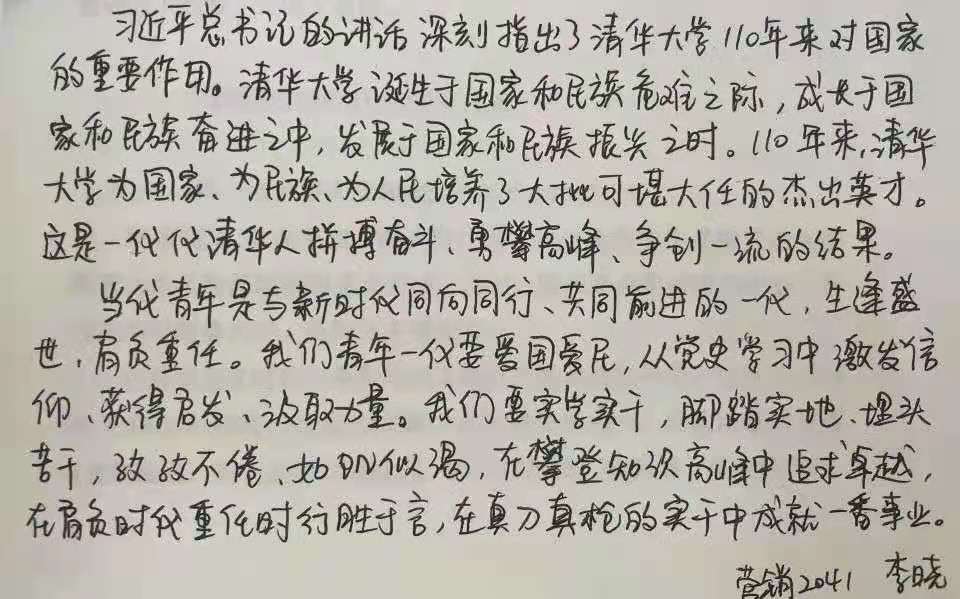 习近平总书记的讲话深刻指出了清华大学110年来对国家
的重要作用。清华大学诞生于国家和民族危难之际，成长于国
家和民族奋进之中，发展于国家和民族振兴之时。110年来，清华
大学为国家、为民族、为人民培养了大批可堪大任的杰出英才。
这是一代代清华人拼搏奋斗、勇攀高峰、争创一流的结果。
当代青年是与新时代同向同行、共同前进的一代，生逢盛
世，肩负重任。我们青年一代要爱国爱民，从党史学习中激发信
仰、获得启发、汲取力量。我们要实学实干，脚踏实地、埋头
苦干，孜孜不倦、如饥似渴，在攀登知识高峰中追求卓越，
在肩负时代重任时行胜于言，在真刀真枪的实干中成就一番事业。
营销2041 李晓